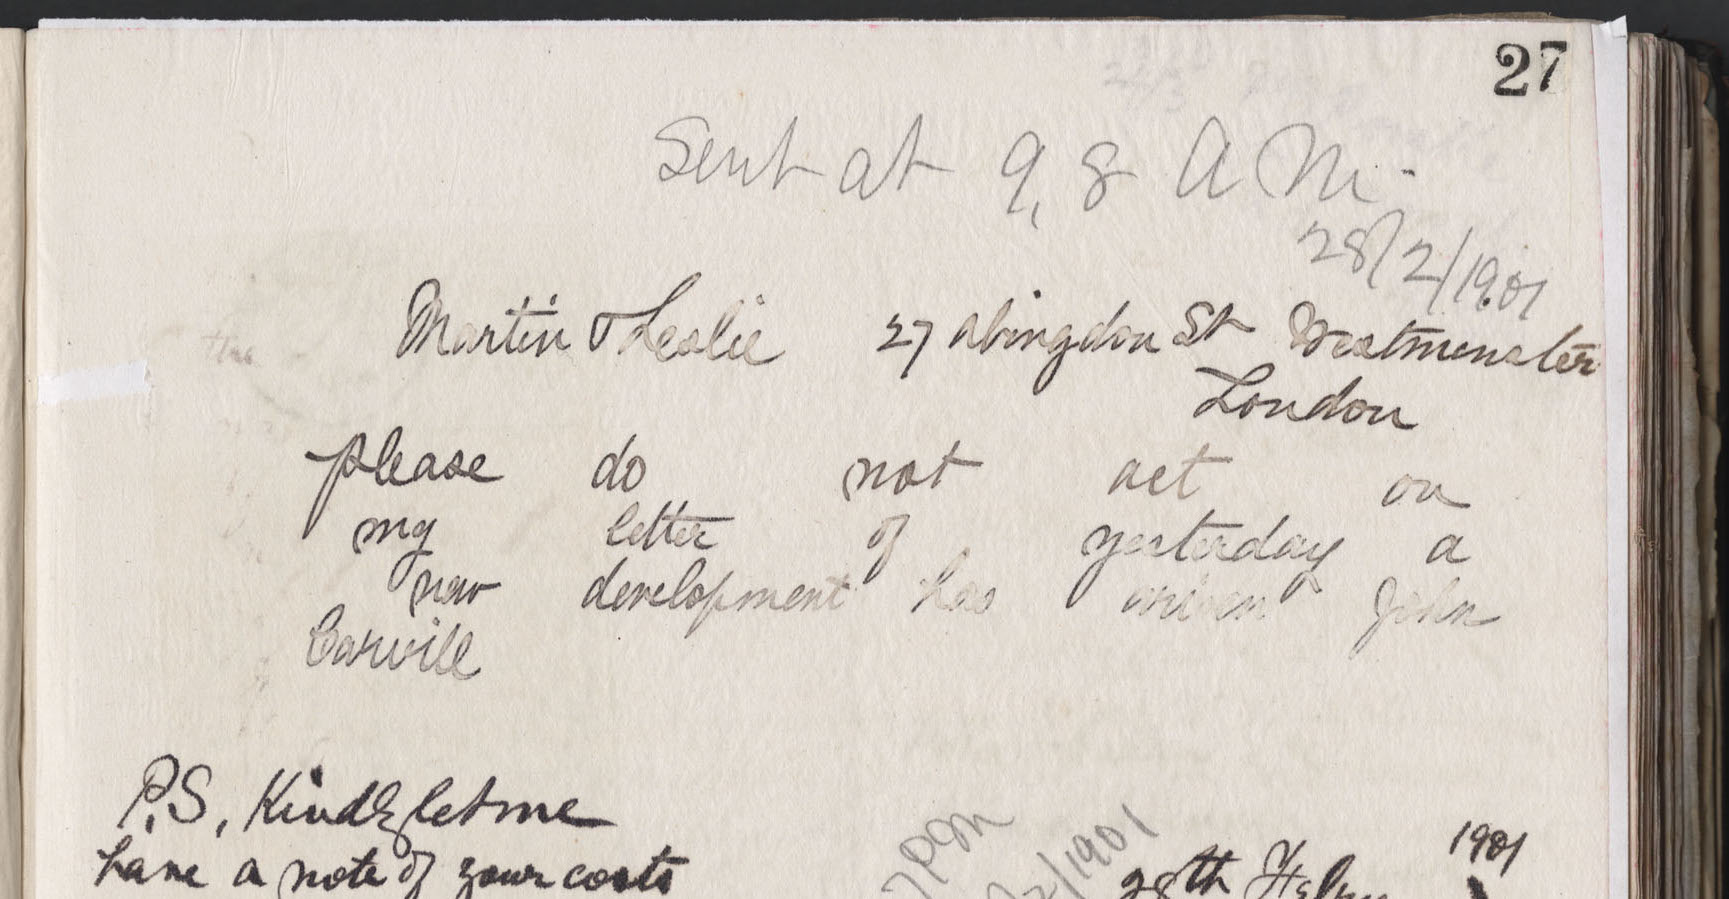 27
Sent at 9,8 AM.
28/2/1901
Martin & Leslie 27 Abingdon St Westminster
London
please do not act on
my letter of yesterday a
new development has arisen John
Carvill
P.S, Kindly let me
have a note of your costs
PM
/2/1901
28th Febry 1901